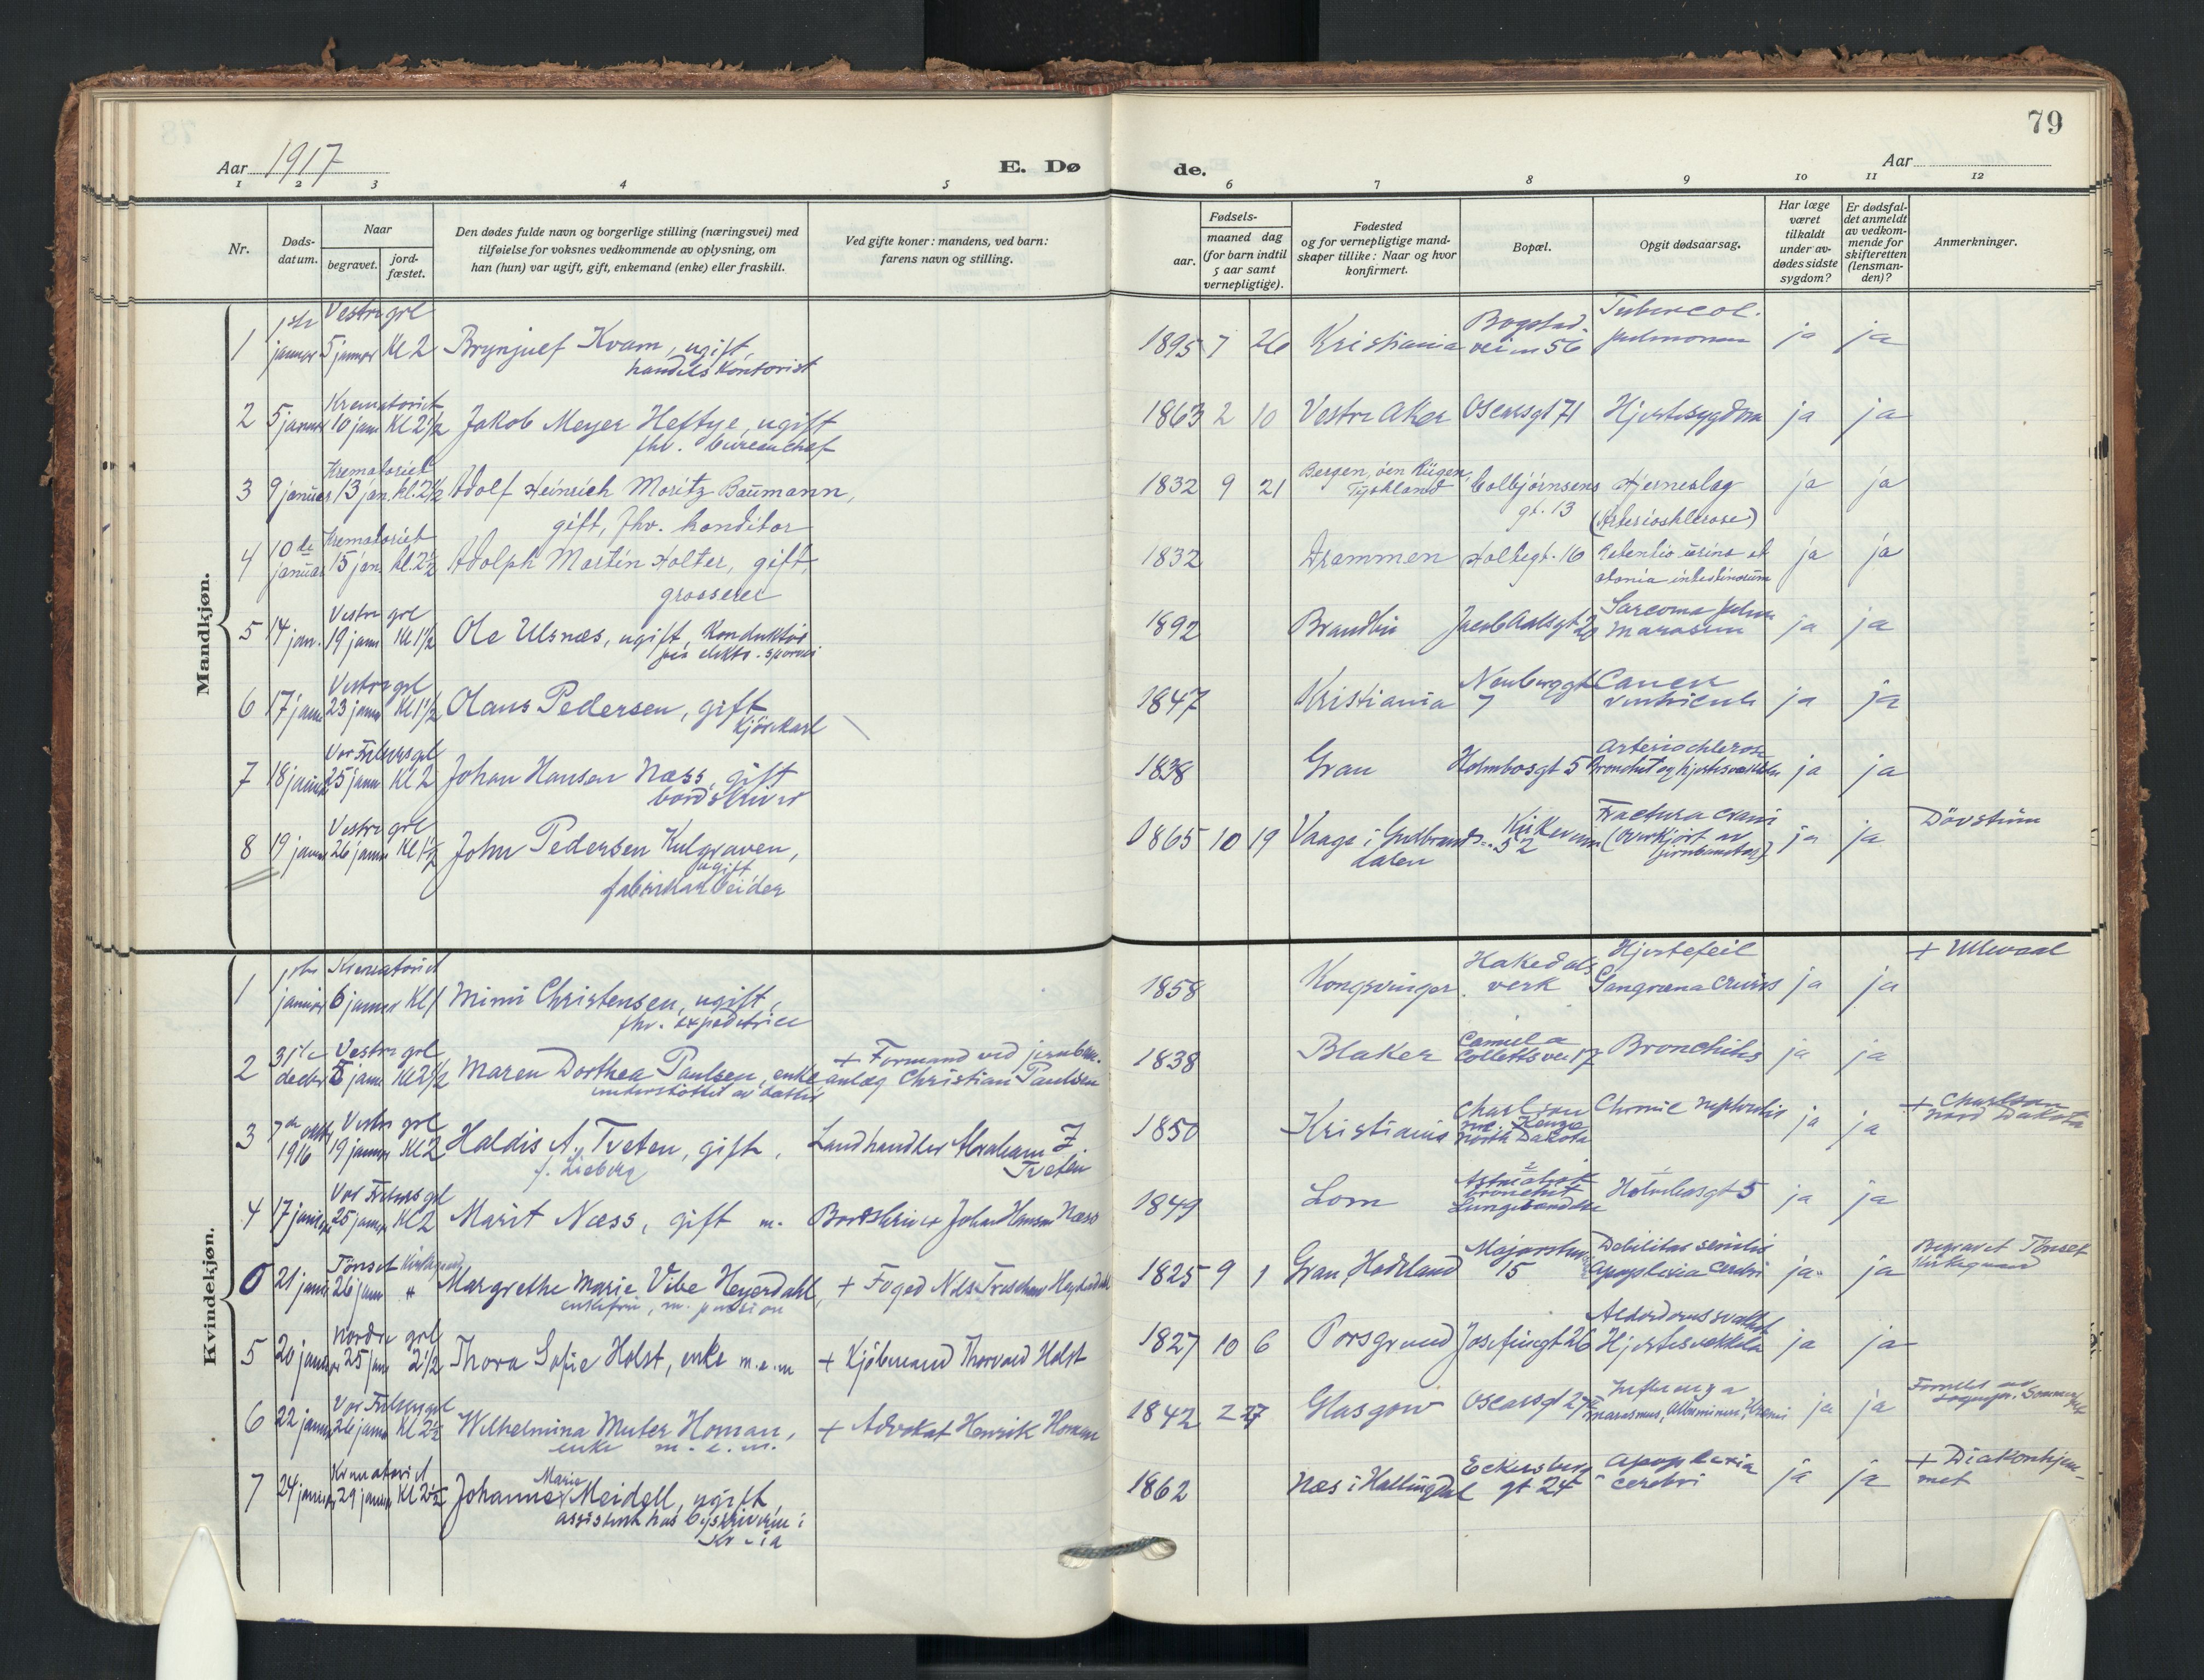 79
Aar 1917
E. Dø de.
Aar
1 2 3 4 5 6 7 8 9 10 11 12
Nr.
Døds-
datum.
Naar
begravet.
jord-
fæstet.
Den dødes fulde navn og borgerlige stilling (næringsvei) med
tilføielse for voksnes vedkommende av oplysning, om
han (hun) var ugift, gift, enkemand (enke) eller fraskilt.
Ved gifte koner: mandens, ved barn:
farens navn og stilling.
Fødsels-
aar.
maaned dag
(for barn indtil
5 aar samt
vernepligtige).
Fødested
og for vernepligtige mand-
skaper tillike: Naar og hvor
konfirmert.
Bopæl.
Opgit dødsaarsag.
Har læge
været
tilkaldt
under av-
dødes sidste
sygdom?
Er dødsfal-
det anmeldt
av vedkom-
mende for
skifteretten
(lensman-
den)?
Anmerkninger.
Mandkjøn.
1 januar Vestre grl 5 januar Kl 2 Brynjulf Kvam, ugift, handelskontorist 1895 7 26 Kristiania Bogstad-veien 56 Tubercol. pulmonum ja ja
2 5 januar Krematoriet 10 jan Kl 2 1/2 Jakob Meyer Heftye, ugift fhv. bureauchef 1863 2 10 Vestre Aker Oscarsgt 71 Hjertesygdom ja ja
3 9 januar Krematoriet 13 jan. kl. 2 1/2 Adolf Heinrich Moritz Baumann, gift, fhv. konditor 1832 9 21 Bergen, øen Rügen, Tyskland Colbjørnsens gt. 13 Hjerneslag (Arteriosklerose) ja ja
4 10de januar Krematoriet 15 jan. kl. 2 1/2 Adolph Martin Holter, gift, grosserer 1832 Drammen Holtegt. 16 Retentio urina et atonia intestinorum ja ja
5 14 jan. Vestre grl 19 janu Kl 1 1/2 Ole Ulsnæs, ugift, Konduktør på elektr. sporvei 1892 Brandbu Jacob Aalsgt 20 Sarcoma pulm marasmus ja ja
6 17 janu Vestre grl 23 janu Kl 1 1/2 Olaus Pedersen, gift Kjørekarl 1847 Kristiania Neuberggt 7 Cancer ventriculi ja ja
7 18 januar Vor Frelsers grl 25 janu Kl 2 Johan Hansen Næss, gift bordskriver 1838 Gran Holmbosgt 5 Arteriosclerose Bronchit og hjertesvækkelse ja ja
8 19 januar Vestre grl 26 janu Kl 1 1/2 John Pedersen Kulgraven, ugift fabrikarbeider 1865 10 19 Vaage i Gudbrands-dalen Kirkeveien 52 Fractura cranii (overkjørt av ja ja Døvstum
Kvindekjøn.
1 januar Krematoriet 6 januar Kl 1 Mimi Christensen, ugift, fhv. expeditrice 1858 Kongsvinger Hakedals verk Hjertefeil Gangræna cruris ja ja + Ullevaal
2 31te decbr Vestre grl 5 janu Kl 2 1/2 Maren Dorthea Paulsen, enke understøttet av datter + Formand ved jernbane-anlæg Christian Paulsen 1838 Blaker Camilla Collettsvei 17 Bronchitis ja ja
3 7de 1916 Vestre grl 19 januar Kl 2 Haldis A. Tveten, gift, Landhandler Abraham Z Tveten 1850 Kristiania Charlson North Dakota Chronic nephritis ja ja + Charlson Nord Dakota
4 17 januar Vor Frelsers grl 25 januar Kl 2 Marit Næss, gift m. Bordskriver Johan Hansen Næss 1849 Lom Astmatisk bronchit Holmbosgt 5 ja ja
0 21 janu Tønset Kirkegaard 26 janu " Margrethe Marie Vibe Heyerdahl, enkefru, m. pension + Foged Nils Treschow Heyerdahl 1825 9 1 Gran, Hadeland Majorstuveien 15 Debilitas senilis Apoplexia cerebri ja ja Begravet Tønset Kirkegaard
5 20 januar Nordre grl 25 janu 2 1/2 Thora Sofie Holst, enke m.e.m + Kjøbmand Thorvald Holst 1827 10 6 Porsgrund Josefinegt 26 Alderdomssvakhet Hjertesvækkelse ja ja
6 22 januar Vor Frelsers grl 26 janu Kl 2 1/2 Wilhelmina Muter Homan, enke m.e.m. + Advokat Henrik Homan 1842 2 27 Glasgow Oscarsgt 27 Influenza marasmus, Albuminuri, Uræmi ja ja
7 24 januar Krematoriet 29 januar Kl 2 1/2 Johanne Marie Meidell, ugift, assistent hos byskriveren i Kr-ia 1862 Næs i Hallingdal Eckersberg gt 24 Apoplexia cerebri ja ja + Diakonhjem-met